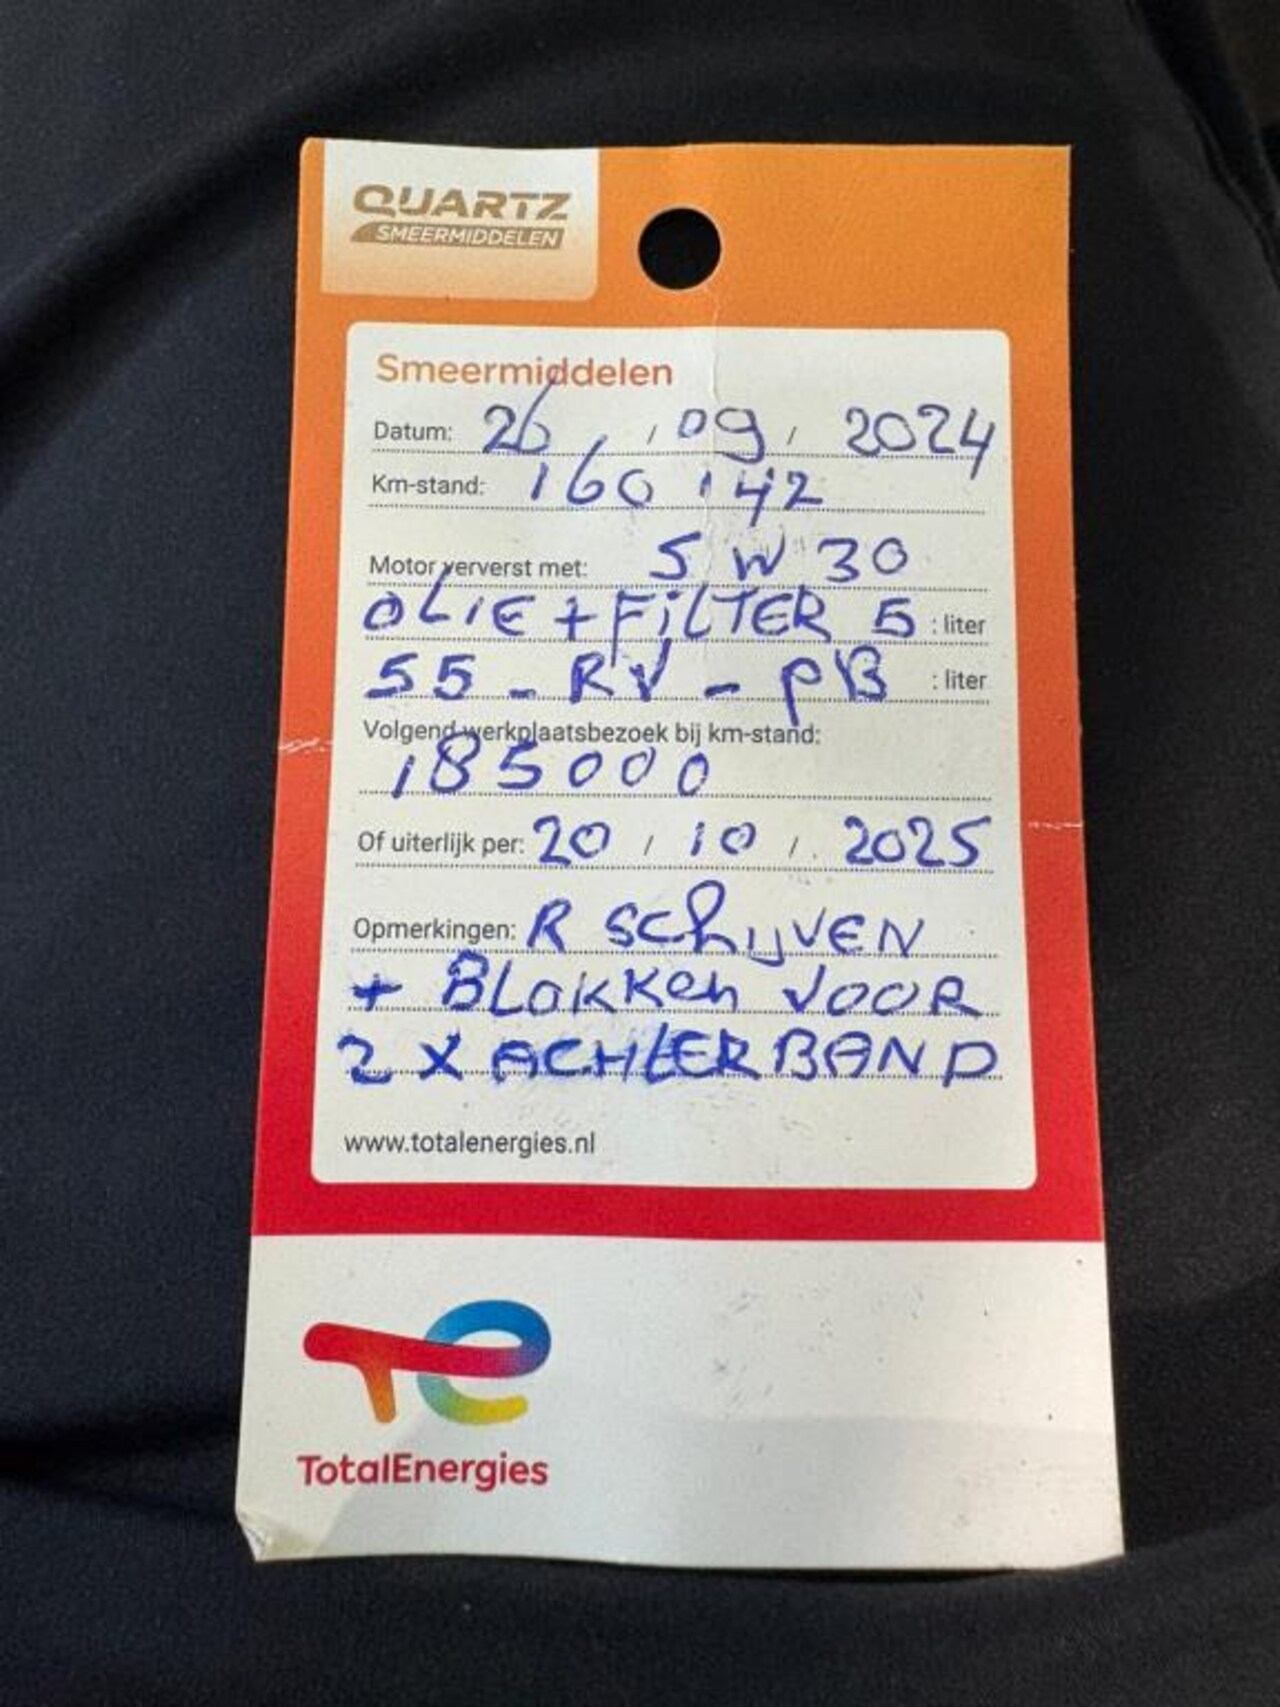 QUARTZ
SMEERMIDDELEN
Smeermiddelen
Datum: 26 / 09 / 2024
Km-stand: 160142
Motor ververst met: 5 W 30
OLIE + FiLTER 5 : liter
55 - RV - PB : liter
Volgend werkplaatsbezoek bij km-stand:
185000
Of uiterlijk per: 20 / 10 / 2025
Opmerkingen: R SCHIJVEN
+ BLOKKEN VOOR
2 X ACHTERBAND
www.totalenergies.nl
TotalEnergies